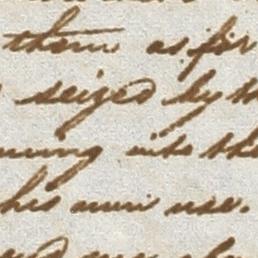 them as for
seized by th
ning into the
his own use.